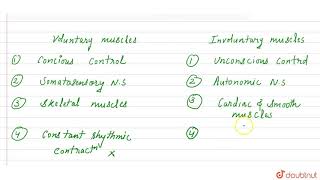 Voluntary muscles    Involuntary muscles
① Concious Control    ① Unconscious Control
② Somatosensory N.S    ② Autonomic N.S
③ Skeletal muscles    ③ Cardiac & Smooth
muscles
④ Constant rhythmic    ④
contractn x
doubtnut